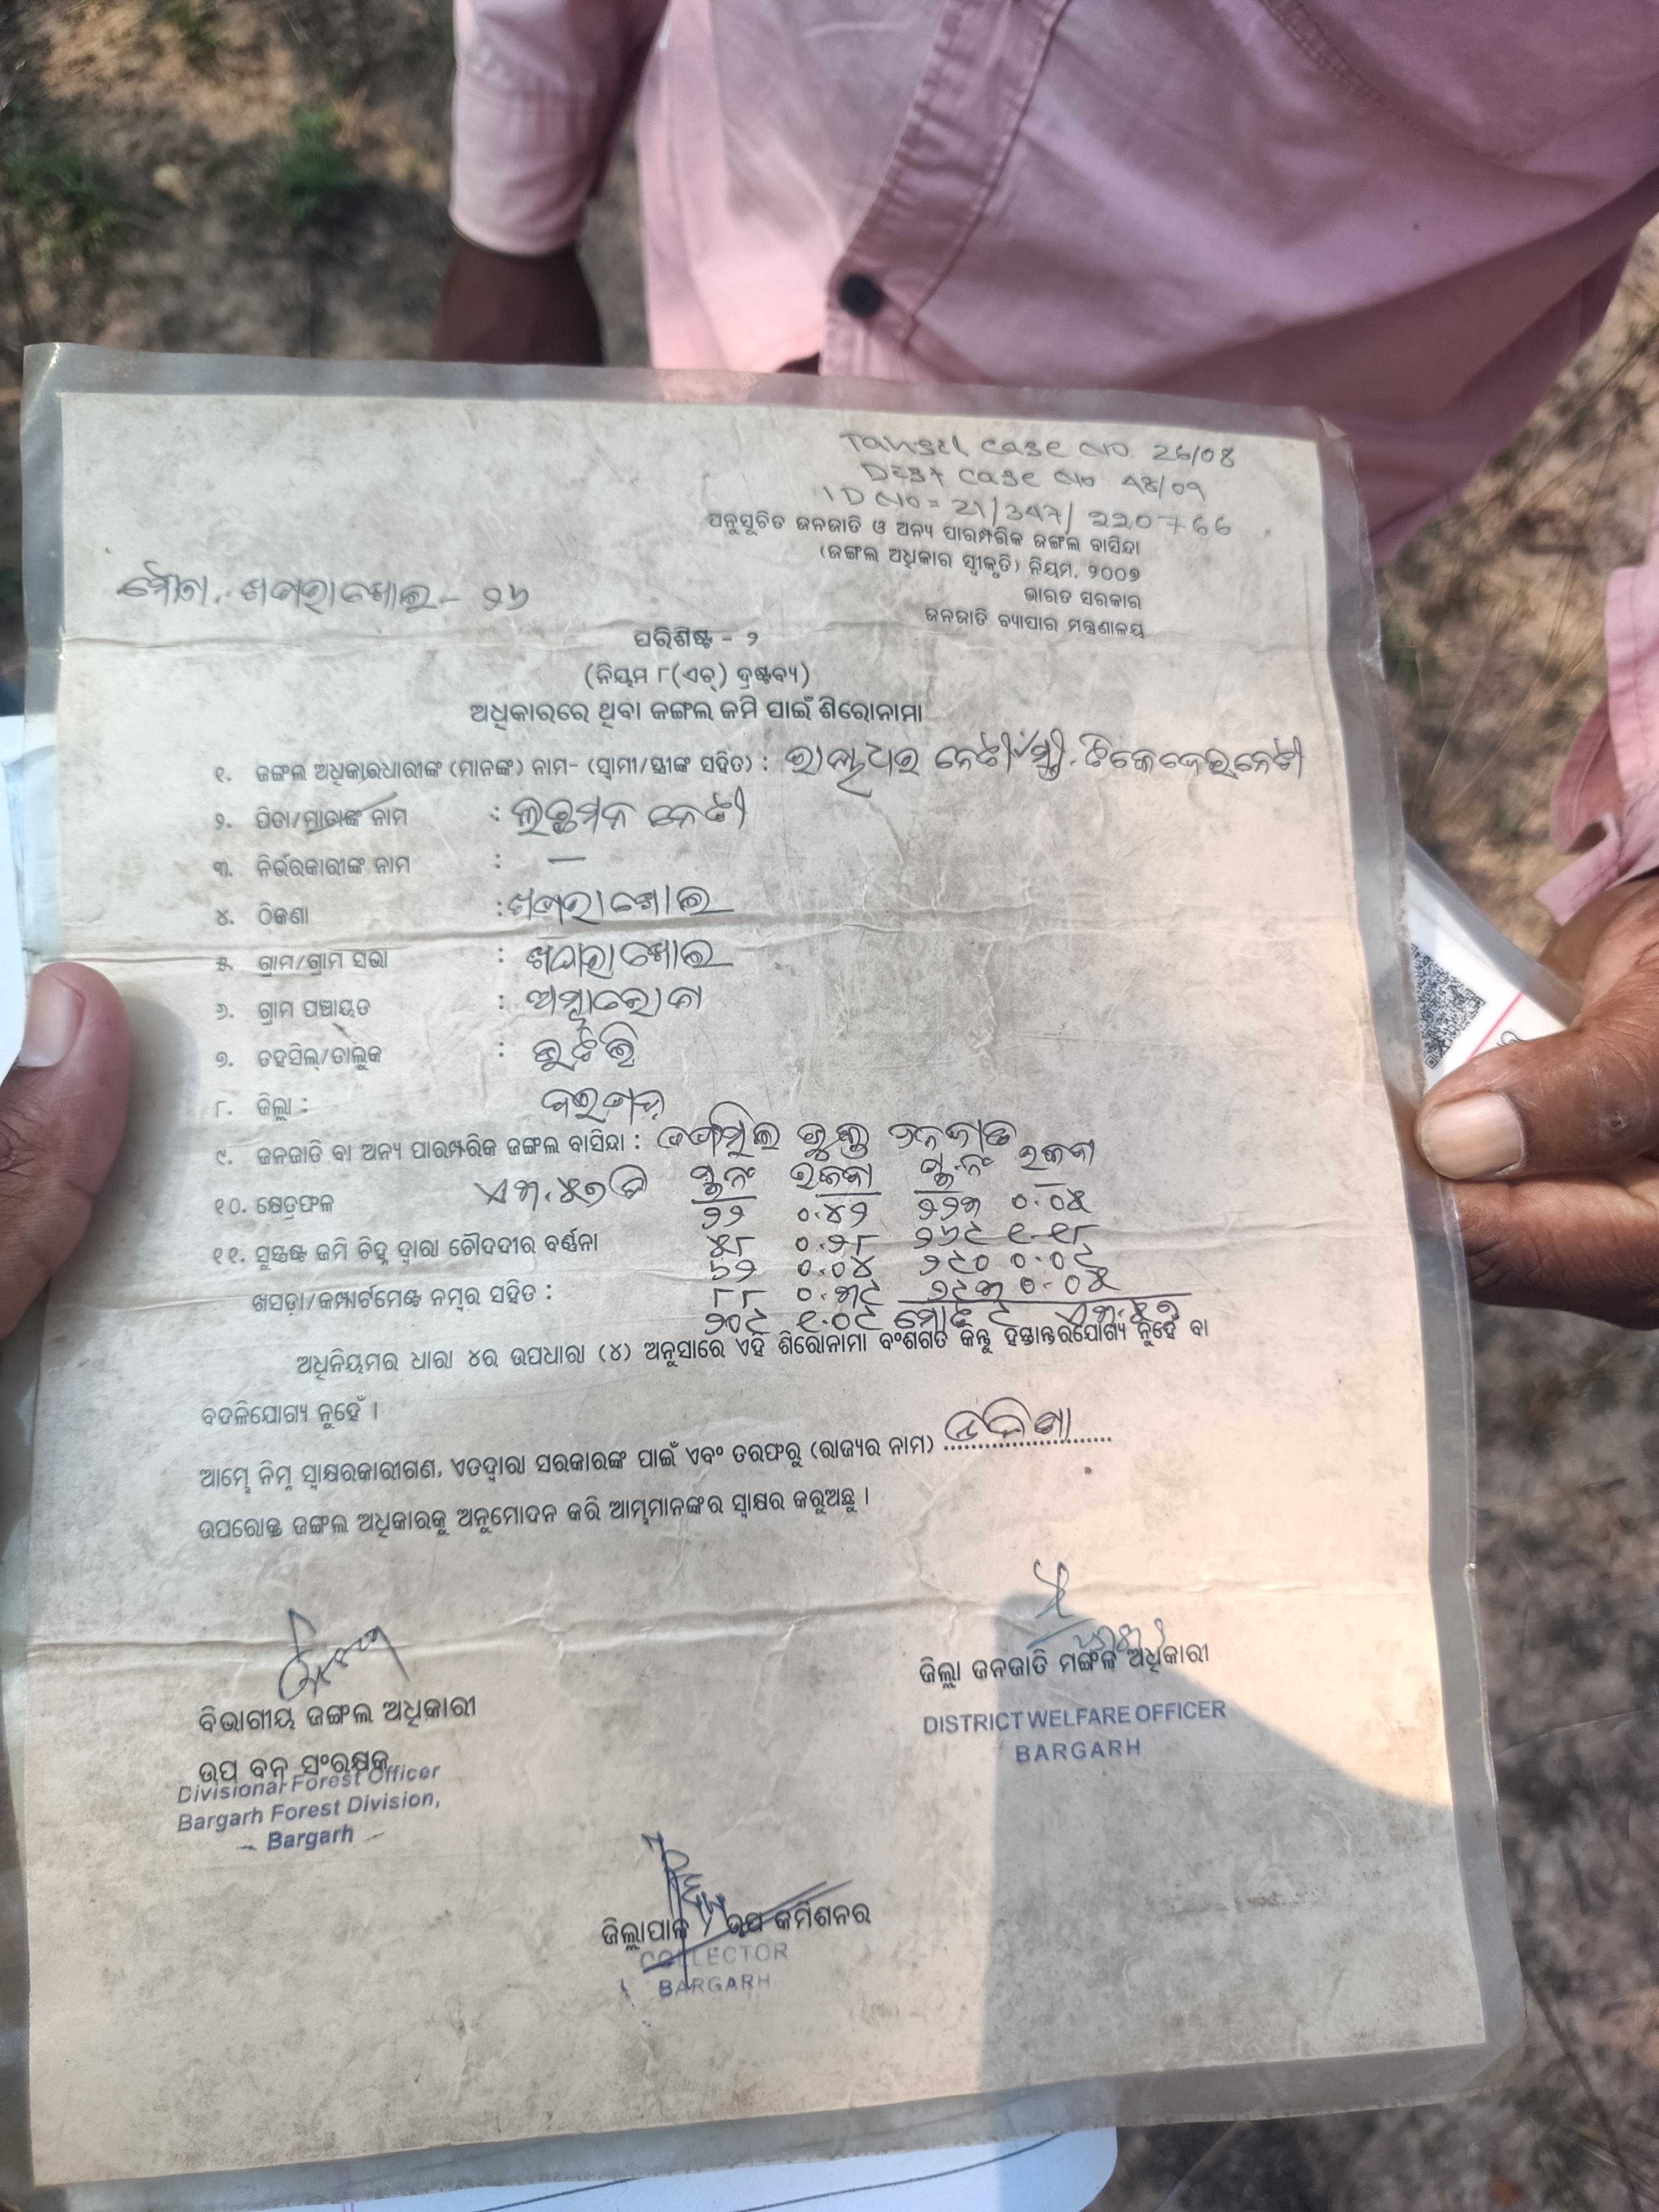 Tahsil Case No. 26/08
Dist Case No 48/09
ID No = 21/347/220766
ଅନୁସୂଚିତ ଜନଜାତି ଓ ଅନ୍ୟ ପାରମ୍ପରିକ ଜଙ୍ଗଲ ବାସିନ୍ଦା
(ଜଙ୍ଗଲ ଅଧିକାର ସ୍ୱୀକୃତି) ନିୟମ, ୨୦୦୭
ଭାରତ ସରକାର
ଜନଜାତି ବ୍ୟାପାର ମନ୍ତ୍ରଣାଳୟ
ମୌଜା. ଖଗାରାଖୋଲ - ୨୬
ପରିଶିଷ୍ଟ - ୨
(ନିୟମ ୮(ଏଚ୍) ଦ୍ରଷ୍ଟବ୍ୟ)
ଅଧିକାରରେ ଥିବା ଜଙ୍ଗଲ ଜମି ପାଇଁ ଶିରୋନାମା
୧. ଜଙ୍ଗଲ ଅଧିକାରଧାରୀଙ୍କ (ମାନଙ୍କ) ନାମ- (ସ୍ୱାମୀ/ସ୍ତ୍ରୀଙ୍କ ସହିତ) : ନେଟୀ
୨. ପିତା/ମାତାଙ୍କ ନାମ : ଲଚ୍ଛମନ ନେଟୀ
୩. ନିର୍ଭରକାରୀଙ୍କ ନାମ : —
୪. ଠିକଣା : ଖଗାରାଖୋଲ
୫. ଗ୍ରାମ/ଗ୍ରାମ ସଭା : ଖଗାରାଖୋଲ
୬. ଗ୍ରାମ ପଞ୍ଚାୟତ :
୭. ତହସିଲ୍/ତାଲୁକ :
୮. ଜିଲ୍ଲା : ବରଗଡ଼
୯. ଜନଜାତି ବା ଅନ୍ୟ ପାରମ୍ପରିକ ଜଙ୍ଗଲ ବାସିନ୍ଦା : ତଫସିଲ ଭୁକ୍ତ ଜନଜାତି
୧୦. କ୍ଷେତ୍ରଫଳ ଏ୩.୫୭ ଡି ପ୍ଲଟ ନଂ ରକବା ପ୍ଲଟ ନଂ ରକବା
୨୨ ୦.୪୨ ୨୨୩ ୦.୦୫
୧୧. ସୁସ୍ପଷ୍ଟ ଜମି ଚିହ୍ନ ଦ୍ୱାରା ଚୌଦଦୀର ବର୍ଣ୍ଣନା ୫୮ ୦.୨୮ ୨୬୯ ୧.୧୮
୬୨ ୦.୦୪ ୨୯୦ ୦.୦୯
ଖସଡ଼ା/କମ୍ପାର୍ଟମେଣ୍ଟ ନମ୍ବର ସହିତ : ୮୮ ୦.୩୯ ୨୯୩ ୦.୦୫
୨୦୯ ୧.୦୯ ମୋଟ ୯ ଏ୩.୫୭
ଅଧିନିୟମର ଧାରା ୪ର ଉପଧାରା (୪) ଅନୁସାରେ ଏହି ଶିରୋନାମା ବଂଶଗତ କିନ୍ତୁ ହସ୍ତାନ୍ତରଯୋଗ୍ୟ ନୁହେଁ ବା
ବଦଳିଯୋଗ୍ୟ ନୁହେଁ ।
ଆମ୍ଭେ ନିମ୍ନ ସ୍ୱାକ୍ଷରକାରୀଗଣ, ଏତଦ୍ୱାରା ସରକାରଙ୍କ ପାଇଁ ଏବଂ ତରଫରୁ (ରାଜ୍ୟର ନାମ) ଓଡିଶା
ଉପରୋକ୍ତ ଜଙ୍ଗଲ ଅଧିକାରକୁ ଅନୁମୋଦନ କରି ଆମ୍ଭମାନଙ୍କର ସ୍ୱାକ୍ଷର କରୁଅଛୁ ।
ବିଭାଗୀୟ ଜଙ୍ଗଲ ଅଧିକାରୀ
ଉପ ବନ ସଂରକ୍ଷକ
Divisional Forest Officer
Bargarh Forest Division,
Bargarh
ଜିଲ୍ଲା ଜନଜାତି ମଙ୍ଗଳ ଅଧିକାରୀ
DISTRICT WELFARE OFFICER
BARGARH
ଜିଲ୍ଲାପାଳ / ଉପ କମିଶନର
COLLECTOR
BARGARH